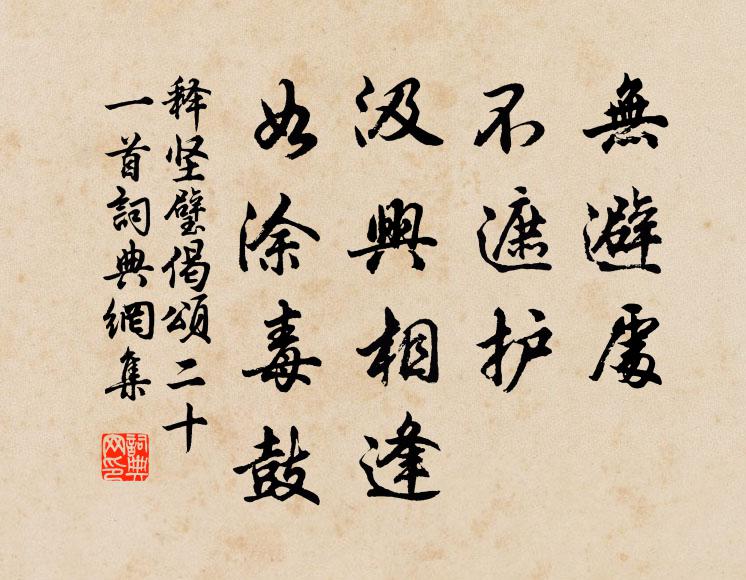 無避處
不遮护
没興相逢
如涂毒鼓
释坚璧偈頌二十
一首詞典網集
詞典
网印